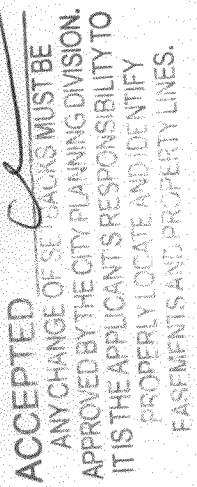 ACCEPTED
ANY CHANGE OF SETBACKS MUST BE
APPROVED BY THE CITY PLANNING DIVISION.
IT IS THE APPLICANT'S RESPONSIBILITY TO
PROPERLY LOCATE AND IDENTIFY
EASEMENTS AND PROPERTY LINES.